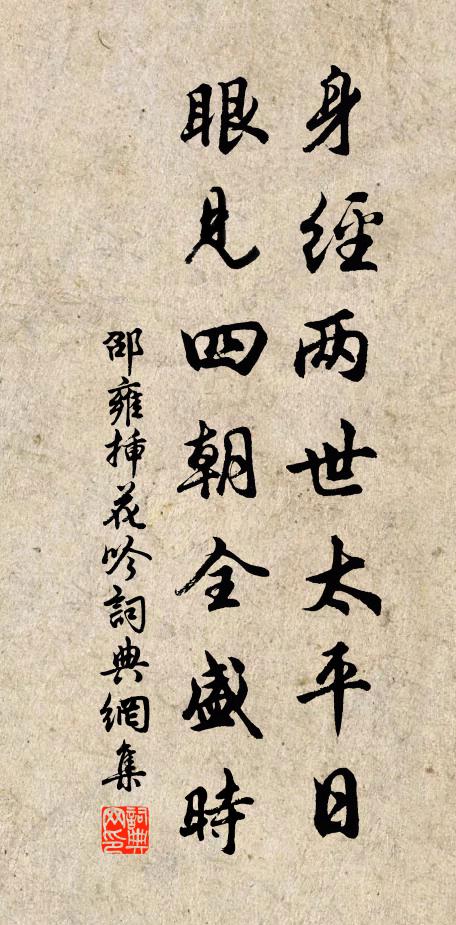 身經两世太平日
眼見四朝全盛時
邵雍插花吟詞典網集
詞典网印